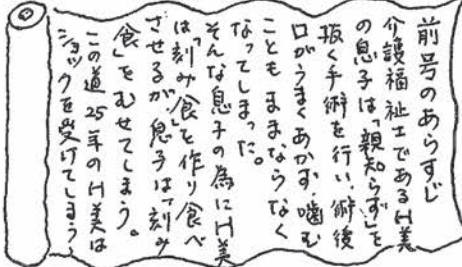 前号のあらすじ
介護福祉士であるH美
の息子は「親知らず」を
抜く手術を行い、術後
口がうまくあかず、噛む
こともままならなく
なってしまった。
そんな息子の為にH美
は「刻み食」を作り食べ
させるが、息子は「刻み
食」をむせてしまう。
この道25年のH美は
ショックを受けてしまう